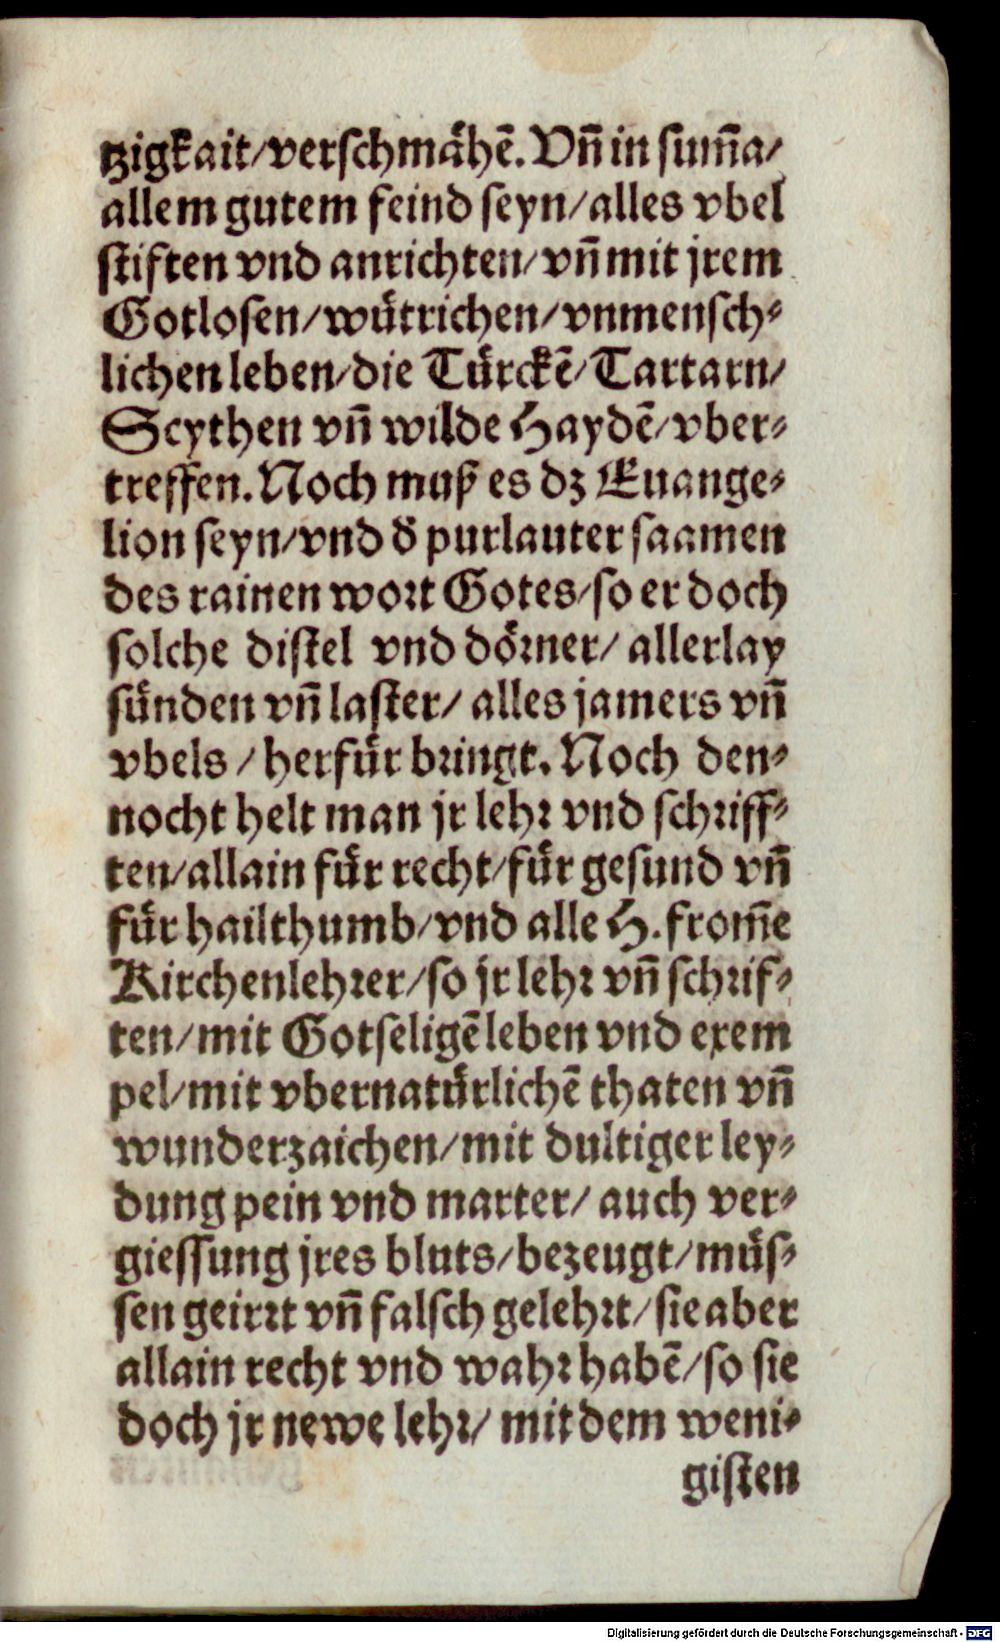 tzigkait/verschmähẽ. Vñ in sum̃a/
allem gutem feind seyn/alles vbel
stiften vnd anrichten/vñ mit jrem
Gotlosen/wütrichen/vnmensch-
lichen leben/die Türckẽ/Tartarn/
Scythen vñ wilde Haydẽ/vber-
treffen. Noch muß es dz Euange-
lion seyn/vnd d̃ purlauter saamen
des rainen wort Gotes/so er doch
solche distel vnd dörner/ allerlay
sünden vñ laster/ alles jamers vñ
vbels / herfür bringt. Noch den-
nocht helt man jr lehr vnd schriff-
ten/allain für recht/für gesund vñ
für hailthumb/vnd alle H. from̃e
Kirchenlehrer/so jr lehr vñ schrif-
ten/mit Gotseligẽ leben vnd exem
pel/mit vbernatürlichẽ thaten vñ
wunderzaichen/mit dultiger ley-
dung pein vnd marter/ auch ver-
giessung jres bluts/bezeugt/müs-
sen geirrt vñ falsch gelehrt/sie aber
allain recht vnd wahr habẽ/so sie
doch jr newe lehr/ mit dem weni-
gisten
Digitalisierung gefördert durch die Deutsche Forschungsgemeinschaft - DFG